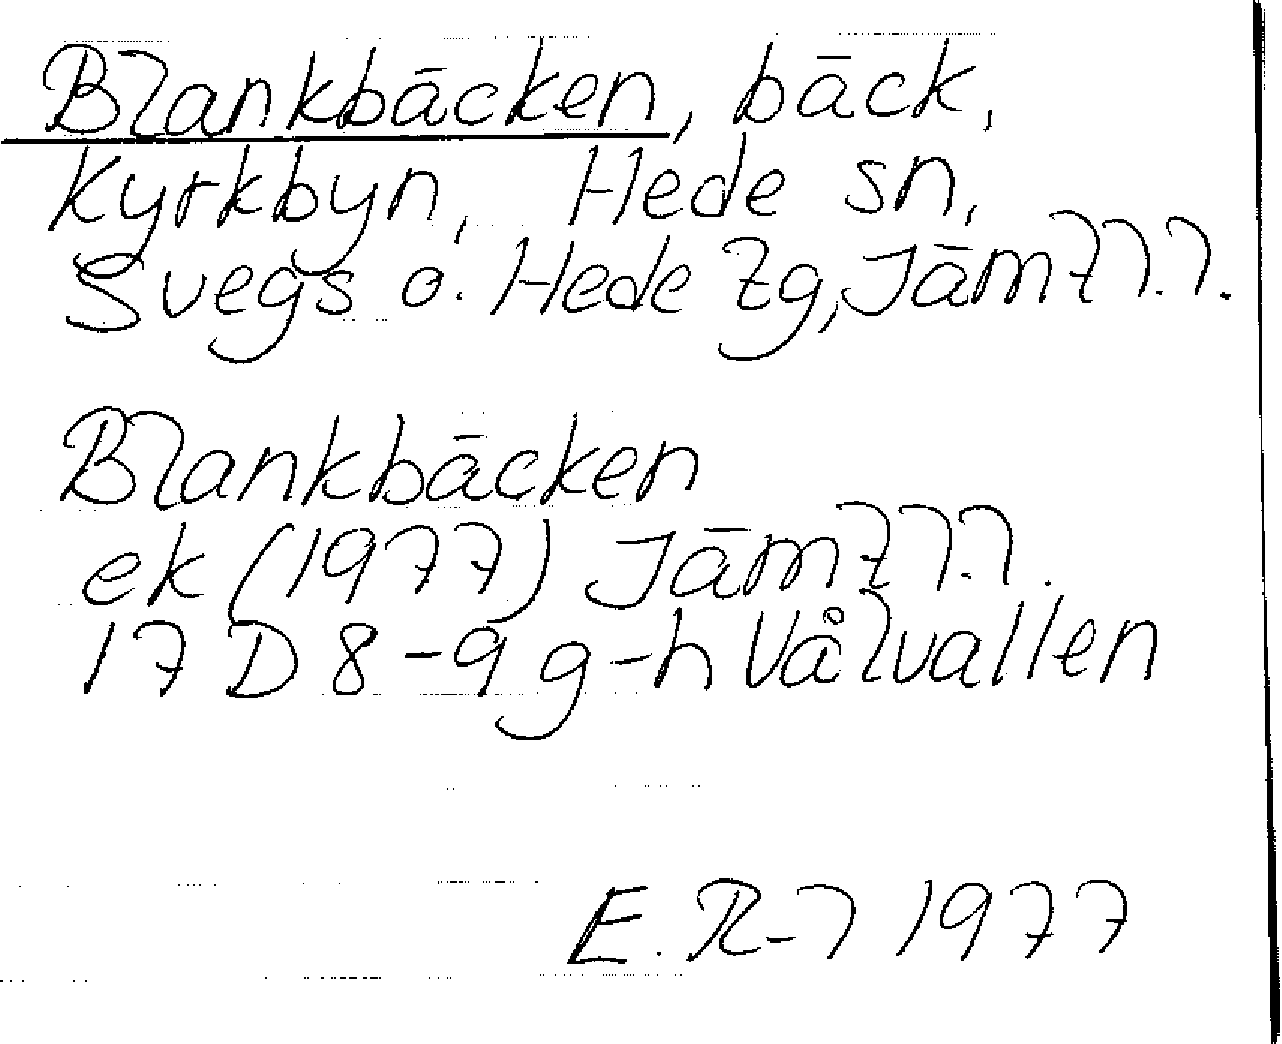 Blankbäcken, bäck,
Kyrkbyn, Hede sn,
Svegs o. Hede tg, Jämtl.l.
Blankbäcken
ek (1977) Jämtl.l.
17 D 8-9 g-h Vålvallen
E. R-l 1977